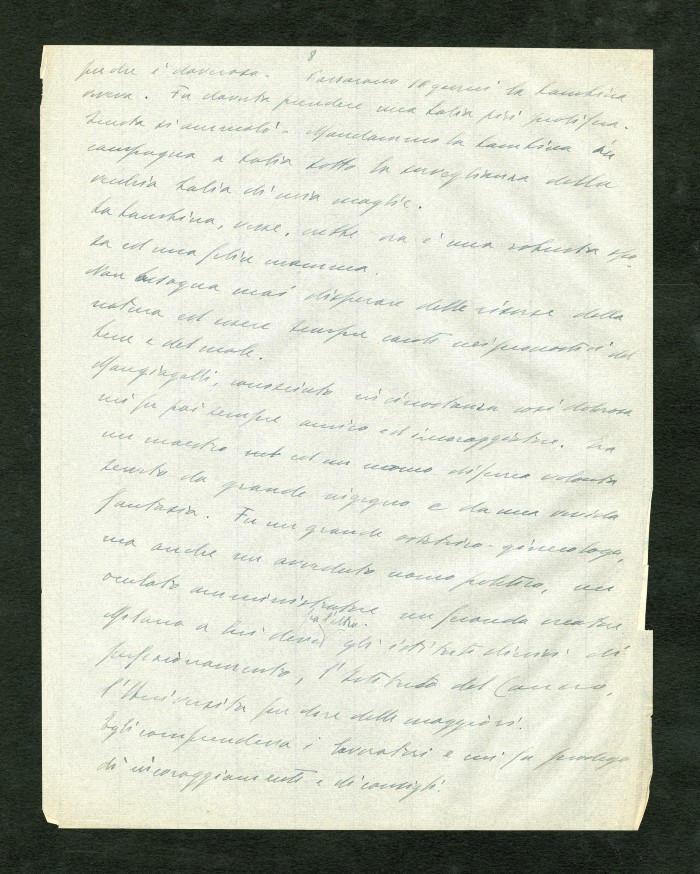 8
perché è doveroso. Passarono 10 giorni la bambina
viveva. Fu dovuta prendere una balia più prolifica.
Questa si ammalò. Mandammo la bambina in
campagna a balia sotto la sorveglianza della
vecchia balia di mia moglie.
La bambina, visse, crebbe ora è una robusta spo-
sa ed una felice mamma.
Non bisogna mai disperare delle risorse della
natura ed essere sempre cauti nei pronostici del
bene e del male.
Mangiagalli, conosciuto in circostanza così dolorosa
mi fu poi sempre amico ed incoraggiatore. Era
un maestro ed un uomo di ferrea volontà
servito da grande ingegno e da una vivida
fantasia. Fu un grande ostetrico-ginecologo,
ma anche un avveduto uomo politico, un
oculato amministratore un grande creatore
Milano a lui deve fra l'altro gli istituti clinici di
perfezionamento, l'Istituto del Cancro,
l'Università per dire delle maggiori.
Egli comprendeva i lavoratori e mi fu prodigo
di incoraggiamenti e di consigli.